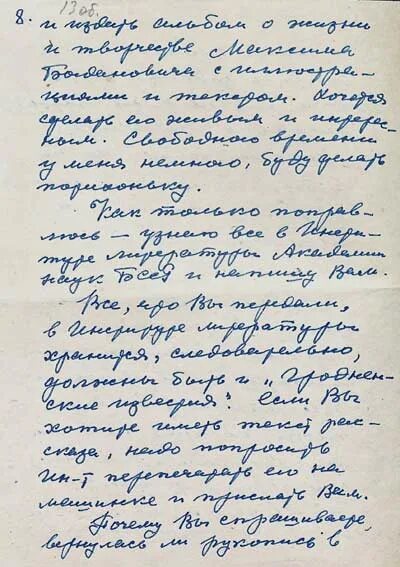 13 об.
8. и издать альбом о жизни
и творчестве Максима
Богдановича с иллюстра-
циями и текстом. Хочется
сделать его живым и интерес-
ным. Свободного времени
у меня немного, буду делать
потихоньку.
Как только поправ-
люсь – узнаю все в Инсти-
туте литературы Академии
наук БССР и напишу Вам.
Все, что Вы передали,
в Институте литературы
хранится, следовательно,
должны быть и „Гроднен-
ские известия". Если Вы
хотите иметь текст рас-
сказа, надо попросить
Ин-т перепечатать его на
машинке и прислать Вам.
Почему Вы спрашиваете,
вернулась ли рукопись в